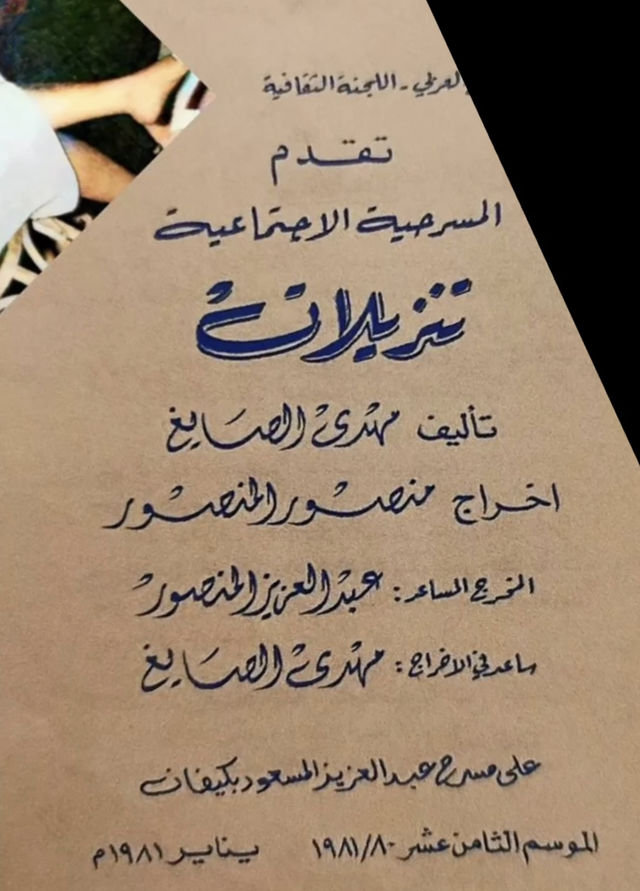 العربي - اللجنة الثقافية
تقدم
المسرحية الاجتماعية
تنزيلات
تأليف مهدي الصايغ
اخراج منصور المنصور
المخرج المساعد : عبد العزيز المنصور
ساعد في الاخراج : مهدي الصايغ
على مسرح عبد العزيز المسعود بكيفان
الموسم الثامن عشر ١٩٨١/٨٠ يناير ١٩٨١م